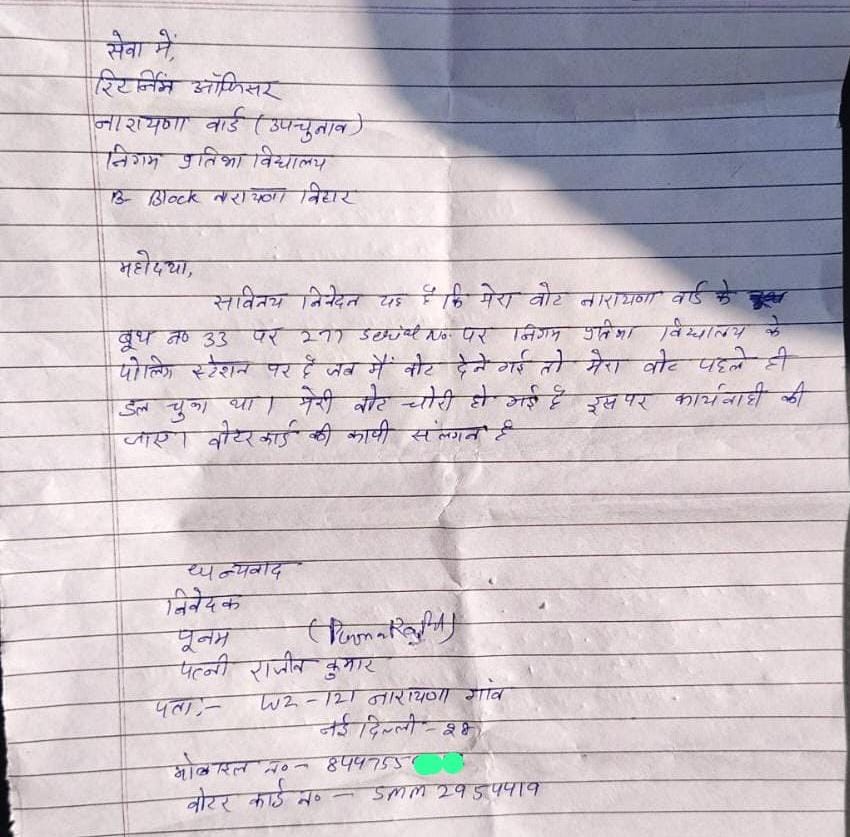 सेवा में,
रिटर्निंग ऑफिसर
नारायणा वार्ड (उपचुनाव)
निगम प्रतिभा विद्यालय
B- Block नारायणा विहार
महोदया,
सविनय निवेदन यह है कि मेरा वोट नारायणा वार्ड के
बूथ न० 33 पर 277 Serial No. पर निगम प्रतिभा विद्यालय के
पोलिंग स्टेशन पर है जब मैं वोट देने गई तो मेरा वोट पहले ही
डल चुका था। मेरी वोट चोरी हो गई है इस पर कार्यवाही की
जाए। वोटर कार्ड की कापी संलगन है
ध्यन्यवाद
निवेदक
पूनम
पत्नी राजीव कुमार
पता:- WZ-121 नारायणा गांव
नई दिल्ली-28
मोबाइल न०- 844755
वोटर कार्ड न० - SMM 2954419